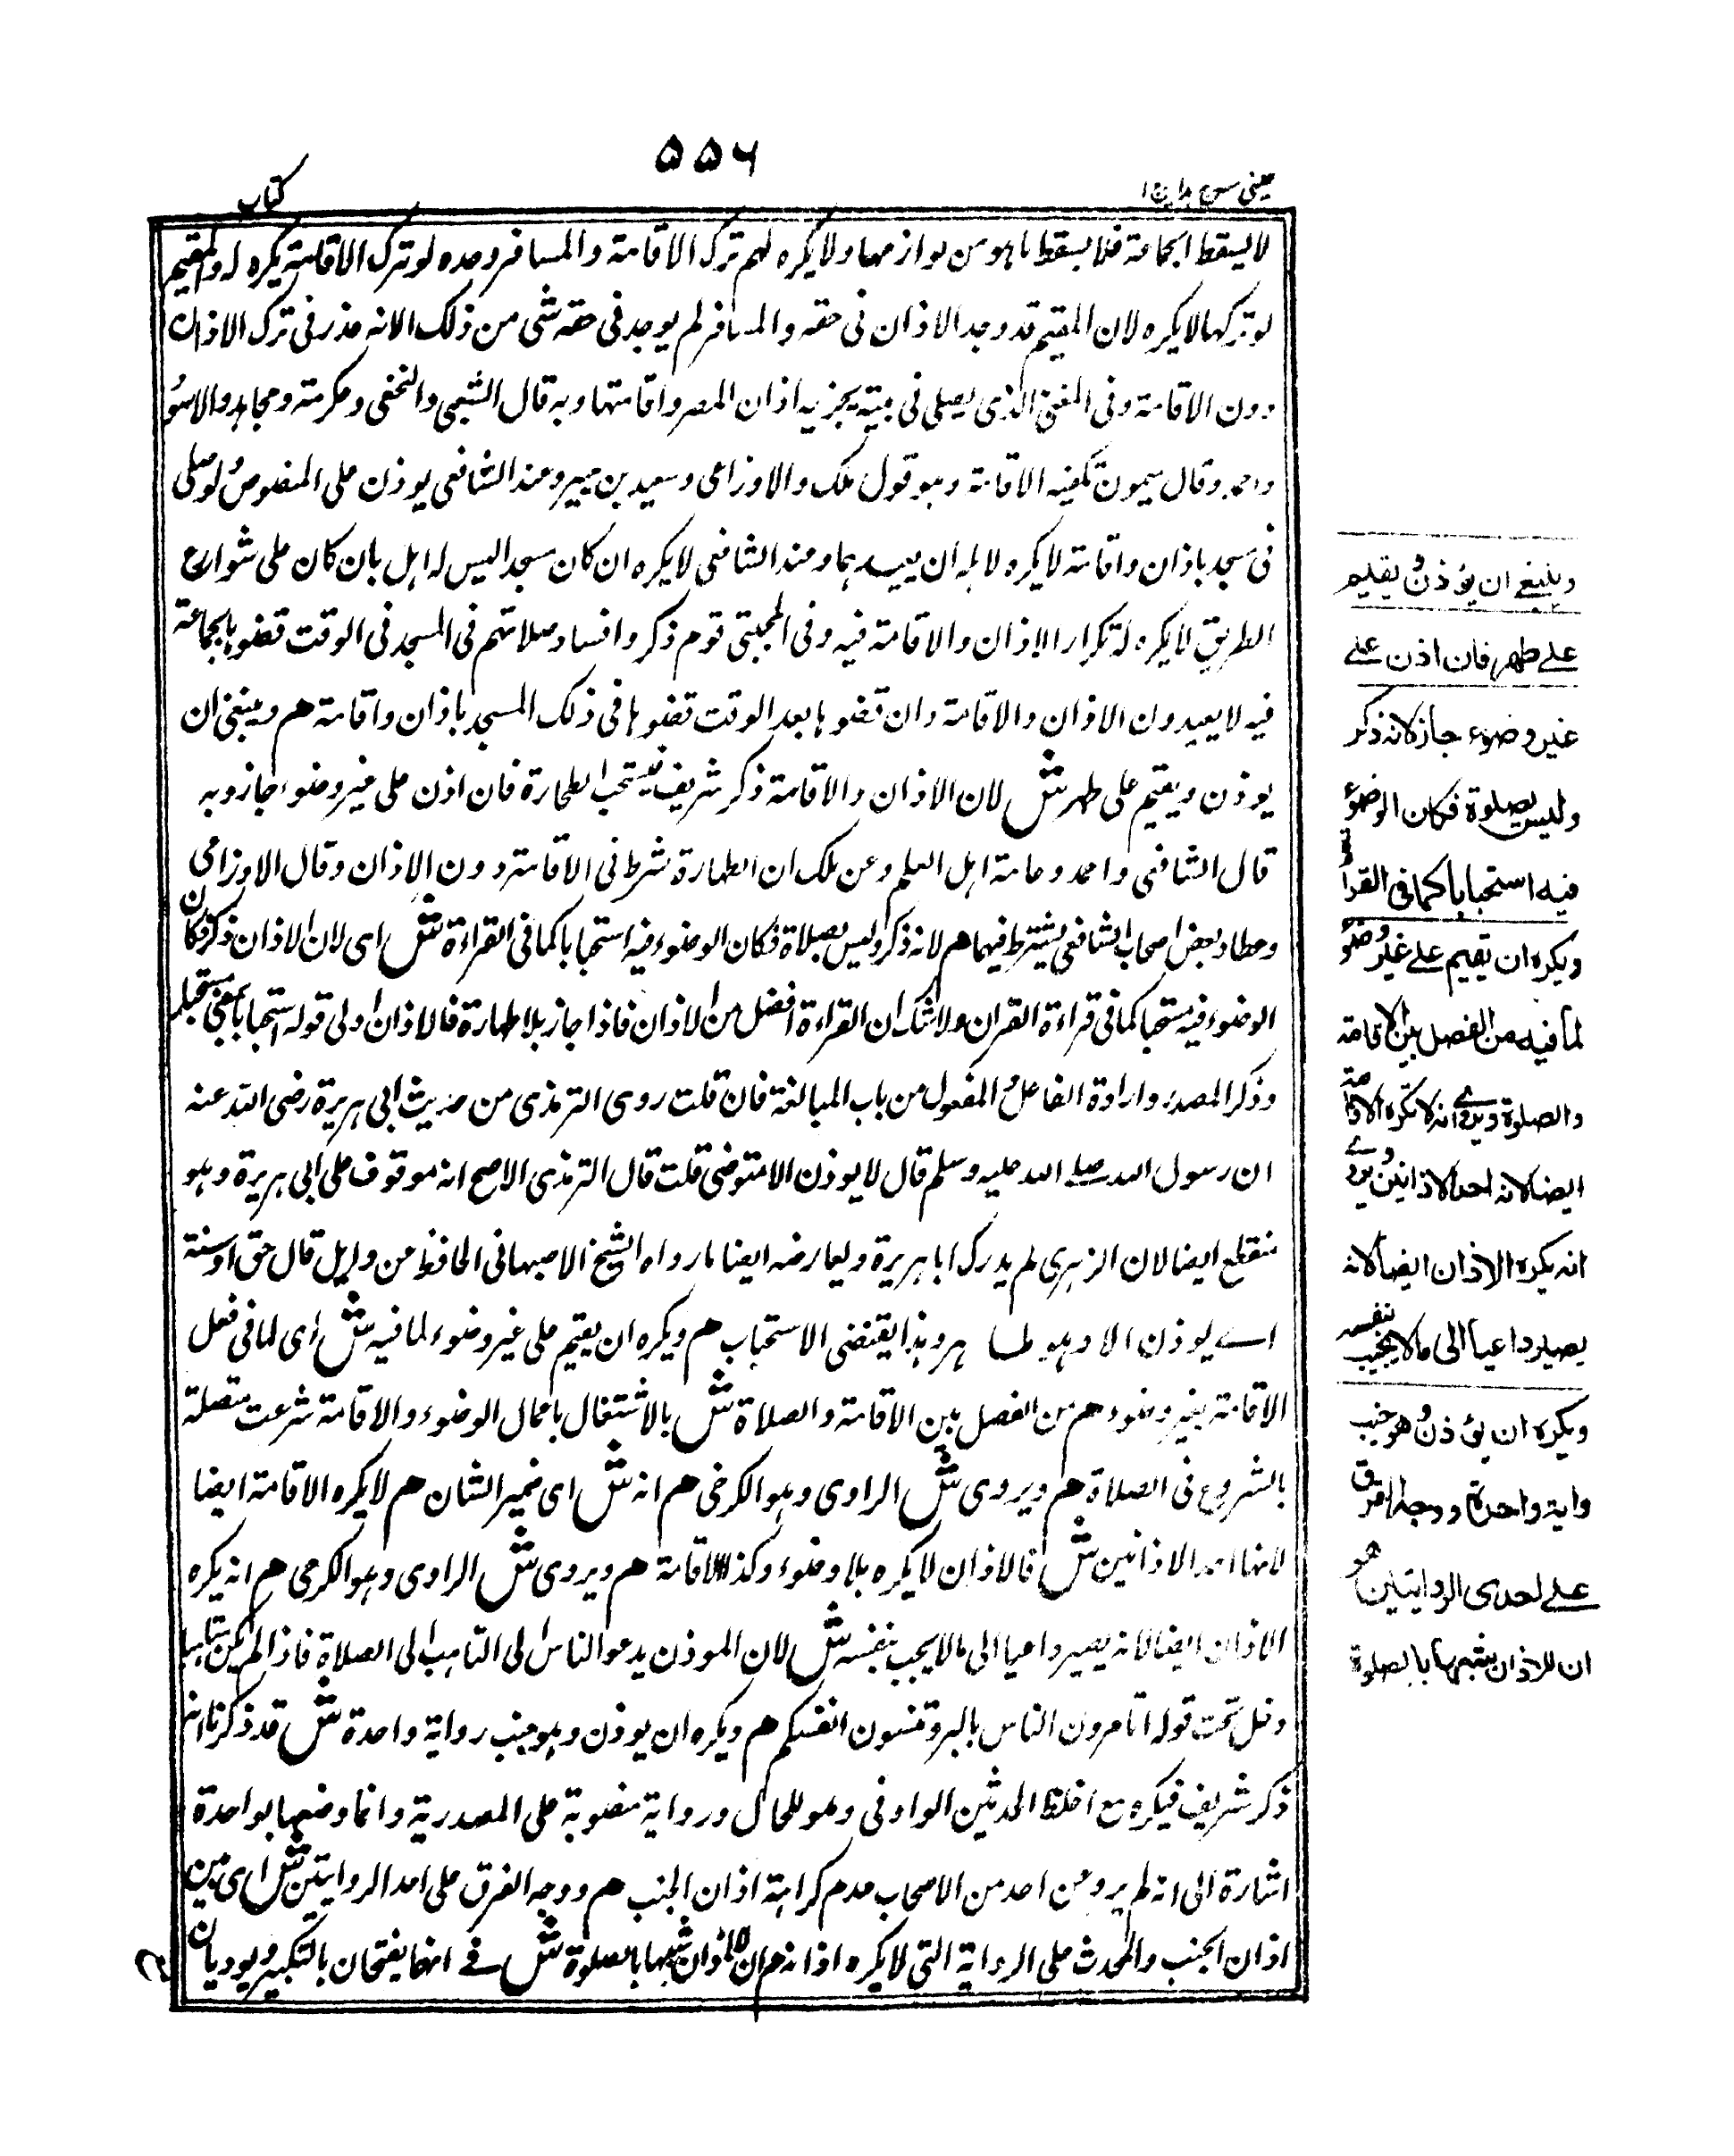 ۵۵۶
عینی شرح هدایه ج ۱
کتاب
لا یسقط الجماعة فلا یسقط ما هو من لوازمها ولا یکره لهم ترک الاقامة والمسافر وحده لو ترک الاقامة یکره له والمقیم
لو ترکها لا یکره لان المقیم قد وجد الاذان فی حقه والمسافر لم یوجد فی حقه شی من ذلک الا انه عذر فی ترک الاذان
دون الاقامة وفی المغنی الذی یصلی فی بیته یجزیه اذان المصر واقامتها وبه قال الشعبی والنخعی وعکرمة ومجاهد والاسود
واحمد وقال میمون تکفیه الاقامة وهو قول ملک والاوزاعی وسعید بن جبیر وعند الشافعی یوذن علی المنصوص لو صلی
فی مسجد باذان واقامة لا یکره لاهله ان یعیدهما وعند الشافعی لا یکره ان کان مسجدا لیس له اهل بان کان علی شوارع
الطریق لا یکره له تکرار الاذان والاقامة فیه وفی المجتبی قوم ذکروا فساد صلاتهم فی المسجد فی الوقت قضوها بجماعة
فیه لا یعیدون الاذان والاقامة وان قضوها بعد الوقت قضوها فی ذلک المسجد باذان واقامة هم وینبغی ان
یوذن ویقیم علی طهر ش لان الاذان والاقامة ذکر شریف فیستحب الطهارة فان اذن علی غیر وضوء جاز وبه
قال الشافعی واحمد وعامة اهل العلم وعن ملک ان الطهارة شرط فی الاقامة دون الاذان وقال الاوزاعی
وعطا وبعض اصحاب الشافعی یشترط فیهما هم لانه ذکر ولیس بصلاة فکان الوضوء فیه استحبابا کما فی القراءة ش ای لان الاذان ذکر فکان
الوضوء فیه مستحبا کما فی قراءة القران ولا شک ان القراءة افضل من الاذان فاذا جاز بلا طهارة فالاذان اولی قوله استحبابا بمعنی مستحبا
وذکر المصدر وارادة الفاعل والمفعول من باب المبالغة فان قلت روی الترمذی من حدیث ابی هریرة رضی الله عنه
ان رسول الله صلی الله علیه وسلم قال لا یوذن الا متوضی قلت قال الترمذی الاصح انه موقوف علی ابی هریرة وهو
منقطع ایضا لان الزهری لم یدرک ابا هریرة ویعارضه ایضا ما رواه الشیخ الاصبهانی الحافظ عن وایل قال حق او سنة
ای یوذن الا وهو طاهر وهذا یقتضی الاستحباب هم ویکره ان یقیم علی غیر وضوء لما فیه ش ای لما فی فعل
الاقامة بغیر وضوء هم من الفصل بین الاقامة والصلاة ش بالاشتغال باعمال الوضوء والاقامة شرعت متصلة
بالشروع فی الصلاة هم ویروی ش الراوی وهو الکرخی هم انه ش ای ضمیر الشان هم لا یکره الاقامة ایضا
لانها احد الاذانین ش فالاذان لا یکره بلا وضوء وکذا الاقامة هم ویروی ش الراوی وهو الکرخی هم انه یکره
الاذان ایضا لانه یصیر داعیا الی ما لا یجیب بنفسه ش لان الموذن یدعو الناس الی التاهب الی الصلاة فاذا لم یکن متاهبا
دخل تحت قوله اتامرون الناس بالبر وتنسون انفسکم هم ویکره ان یوذن وهو جنب روایة واحدة ش قد ذکرنا انه
ذکر شریف فیکره مع اغلظ الحدثین الواو فی وهو للحال وروایة منصوبة علی المصدریة وانما وصفها بواحدة
اشارة الی انه لم یرو عن احد من الاصحاب عدم کراهة اذان الجنب هم ووجه الفرق علی احد الروایتین ش ای بین
اذان الجنب والمحدث علی الروایة التی لا یکره اذانه هم ان للاذان شبها بالصلوة ش فی انهما یفتتحان بالتکبیر ویودیان
وینبغی ان یؤذن ویقیم
علی طهر فان اذن علی
غیر وضوء جاز لانه ذکر
ولیس بصلوة فکان الوضوء
فیه استحبابا کما فی القراءة
ویکره ان یقیم علی غیر وضوء
لما فیه من الفصل بین الاقامة
والصلوة ویروی انه لا تکره الاقامة
ایضا لانه احد الاذانین ویروی
انه یکره الاذان ایضا لانه
یصیر داعیا الی ما لا یجیب بنفسه
ویکره ان یؤذن وهو جنب
روایة واحدة ووجه الفرق
علی احدی الروایتین هو
ان للاذان شبها بالصلوة